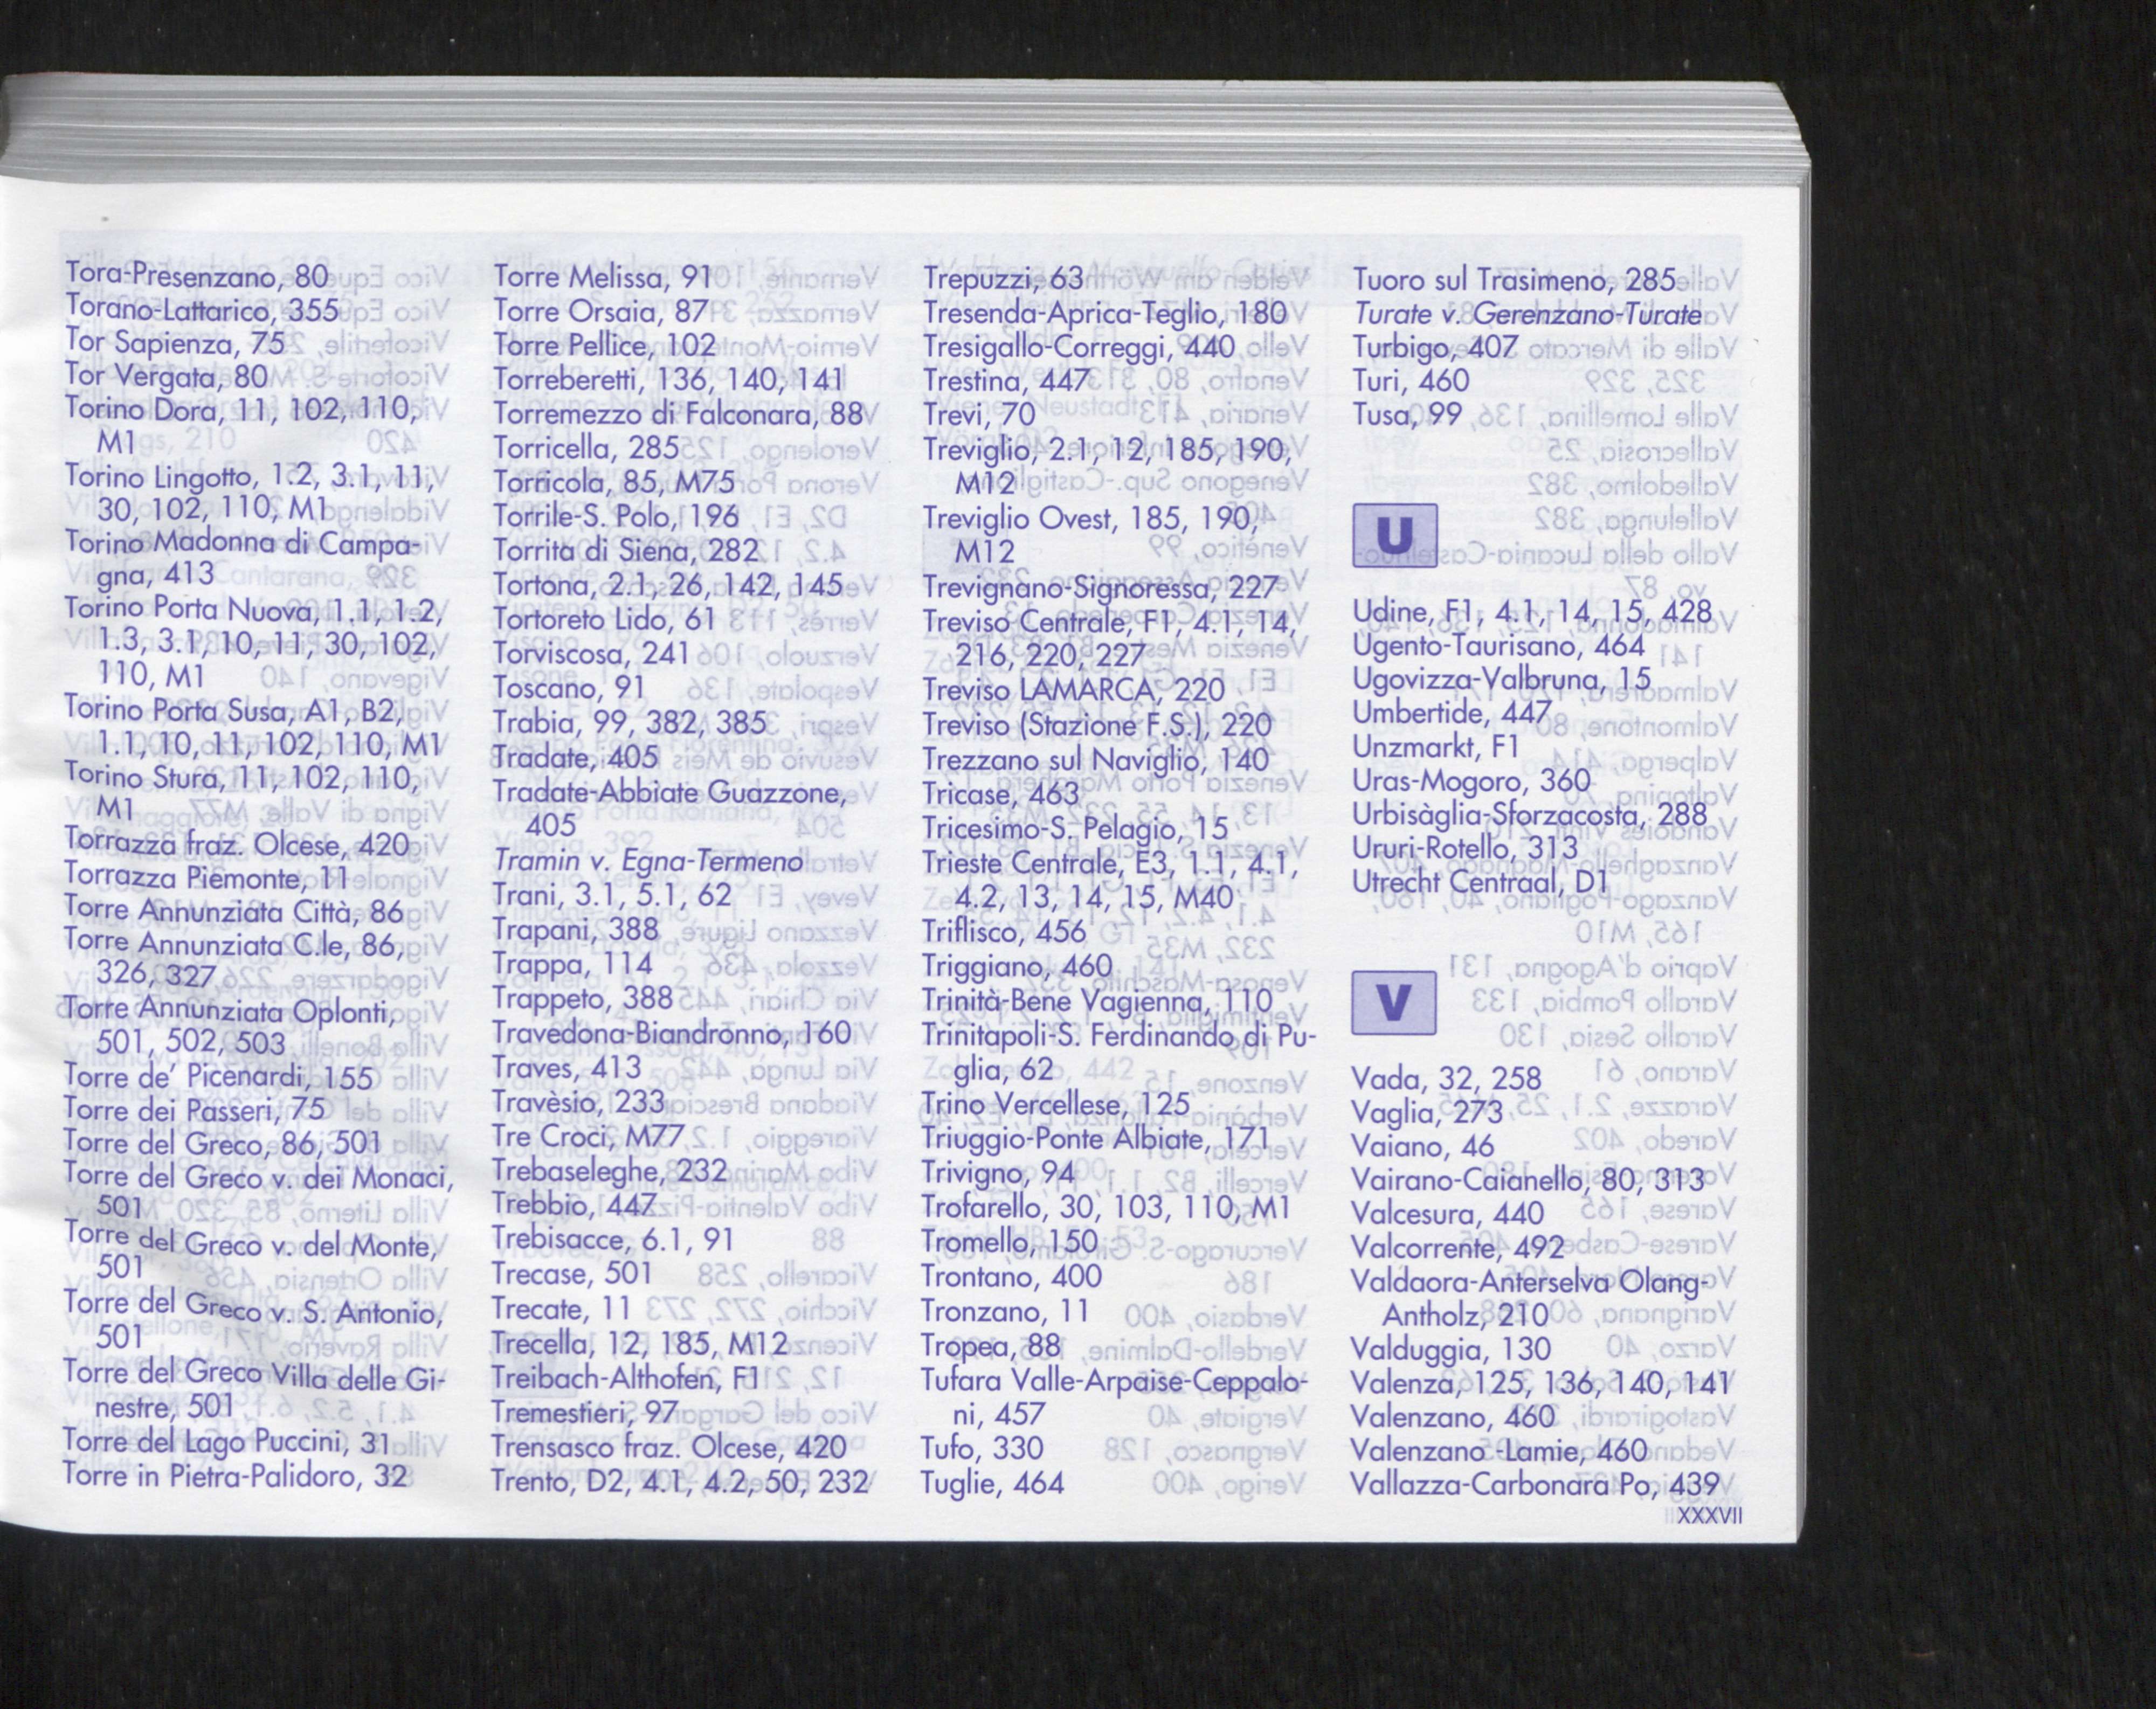 Tora-Presenzano, 80
Torano-Lattarico, 355
Tor Sapienza, 75
Tor Vergata, 80
Torino Dora, 11, 102, 110,
M1
Torino Lingotto, 1.2, 3.1, 11,
30, 102, 110, M1
Torino Madonna di Campa-
gna, 413
Torino Porta Nuova, 1.1, 1.2,
1.3, 3.1, 10, 11, 30, 102,
110, M1
Torino Porta Susa, A1, B2,
1.1, 10, 11, 102, 110, M1
Torino Stura, 11, 102, 110,
M1
Torrazza fraz. Olcese, 420
Torrazza Piemonte, 11
Torre Annunziata Città, 86
Torre Annunziata C.le, 86,
326, 327
Torre Annunziata Oplonti,
501, 502, 503
Torre de' Picenardi, 155
Torre dei Passeri, 75
Torre del Greco, 86, 501
Torre del Greco v. dei Monaci,
501
Torre del Greco v. del Monte,
501
Torre del Greco v. S. Antonio,
501
Torre del Greco Villa delle Gi-
nestre, 501
Torre del Lago Puccini, 31
Torre in Pietra-Palidoro, 32
Torre Melissa, 91
Torre Orsaia, 87
Torre Pellice, 102
Torreberetti, 136, 140, 141
Torremezzo di Falconara, 88
Torricella, 285
Torricola, 85, M75
Torrile-S. Polo, 196
Torrita di Siena, 282
Tortona, 2.1, 26, 142, 145
Tortoreto Lido, 61
Torviscosa, 241
Toscano, 91
Trabia, 99, 382, 385
Tradate, 405
Tradate-Abbiate Guazzone,
405
Tramin v. Egna-Termeno
Trani, 3.1, 5.1, 62
Trapani, 388
Trappa, 114
Trappeto, 388
Travedona-Biandronno, 160
Traves, 413
Travèsio, 233
Tre Croci, M77
Trebaseleghe, 232
Trebbio, 447
Trebisacce, 6.1, 91
Trecase, 501
Trecate, 11
Trecella, 12, 185, M12
Treibach-Althofen, F1
Tremestieri, 97
Trensasco fraz. Olcese, 420
Trento, D2, 4.1, 4.2, 50, 232
Trepuzzi, 63
Tresenda-Aprica-Teglio, 180
Tresigallo-Correggi, 440
Trestina, 447
Trevi, 70
Treviglio, 2.1, 12, 185, 190,
M12
Treviglio Ovest, 185, 190,
M12
Trevignano-Signoressa, 227
Treviso Centrale, F1, 4.1, 14,
216, 220, 227
Treviso LAMARCA, 220
Treviso (Stazione F.S.), 220
Trezzano sul Naviglio, 140
Tricase, 463
Tricesimo-S. Pelagio, 15
Trieste Centrale, E3, 1.1, 4.1,
4.2, 13, 14, 15, M40
Triflisco, 456
Triggiano, 460
Trinità-Bene Vagienna, 110
Trinitapoli-S. Ferdinando di Pu-
glia, 62
Trino Vercellese, 125
Triuggio-Ponte Albiate, 171
Trivigno, 94
Trofarello, 30, 103, 110, M1
Tromello, 150
Trontano, 400
Tronzano, 11
Tropea, 88
Tufara Valle-Arpaise-Ceppalo-
ni, 457
Tufo, 330
Tuglie, 464
Tuoro sul Trasimeno, 285
Turate v. Gerenzano-Turate
Turbigo, 407
Turi, 460
Tusa, 99
U
Udine, F1, 4.1, 14, 15, 428
Ugento-Taurisano, 464
Ugovizza-Valbruna, 15
Umbertide, 447
Unzmarkt, F1
Uras-Mogoro, 360
Urbisàglia-Sforzacosta, 288
Ururi-Rotello, 313
Utrecht Centraal, D1
V
Vada, 32, 258
Vaglia, 273
Vaiano, 46
Vairano-Caianello, 80, 313
Valcesura, 440
Valcorrente, 492
Valdaora-Anterselva Olang-
Antholz, 210
Valduggia, 130
Valenza, 125, 136, 140, 141
Valenzano, 460
Valenzano -Lamie, 460
Vallazza-Carbonara Po, 439
XXXVII